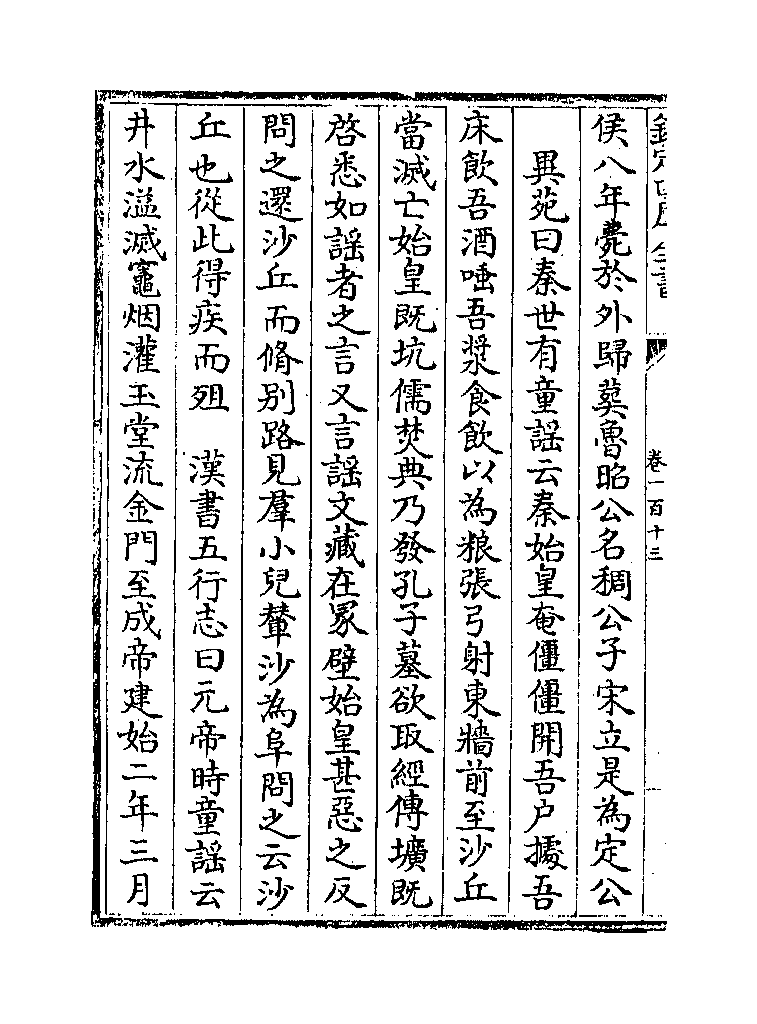 欽定四庫全書
卷一百十三
侯八年薨於外歸葬魯昭公名稠公子宋立是為定公
異苑曰秦世有童謡云秦始皇奄僵僵開吾户據吾
床飲吾酒唾吾漿食飲以為粮張弓射東牆前至沙丘
當滅亡始皇既坑儒焚典乃發孔子墓欲取經傳壙既
啓悉如謡者之言又言謡文藏在冢壁始皇甚惡之反
問之還沙丘而脩别路見羣小兒輦沙為阜問之云沙
丘也從此得疾而殂　漢書五行志曰元帝時童謡云
井水溢滅竈烟灌玉堂流金門至成帝建始二年三月